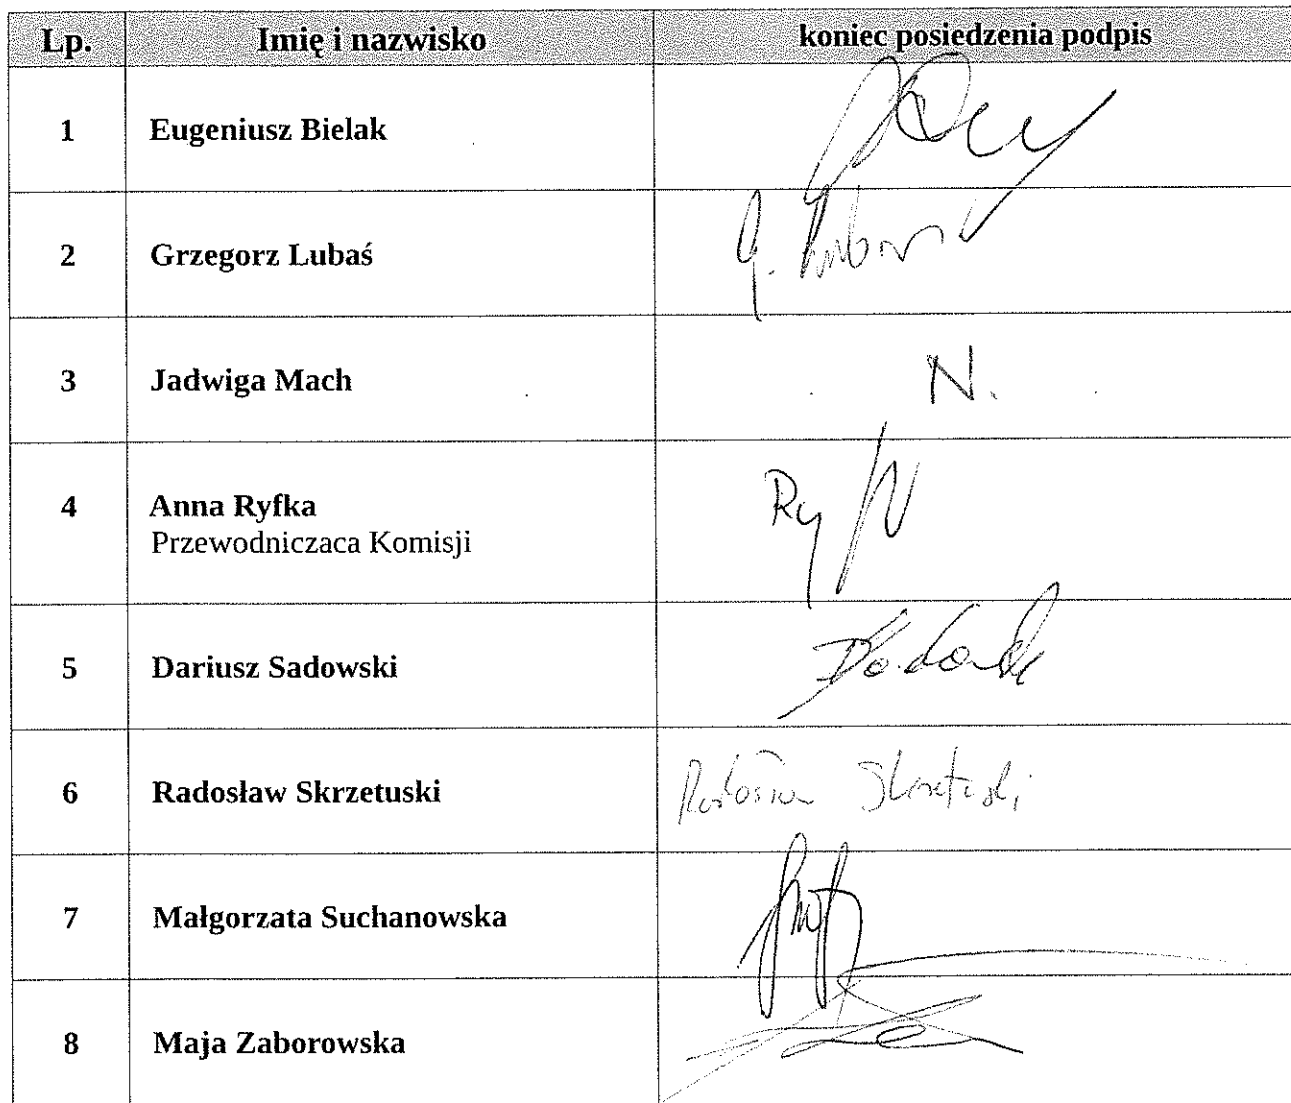 Lp. Imię i nazwisko koniec posiedzenia podpis
1 Eugeniusz Bielak
2 Grzegorz Lubaś
3 Jadwiga Mach N.
4 Anna Ryfka
Przewodniczaca Komisji
5 Dariusz Sadowski
6 Radosław Skrzetuski
7 Małgorzata Suchanowska
8 Maja Zaborowska